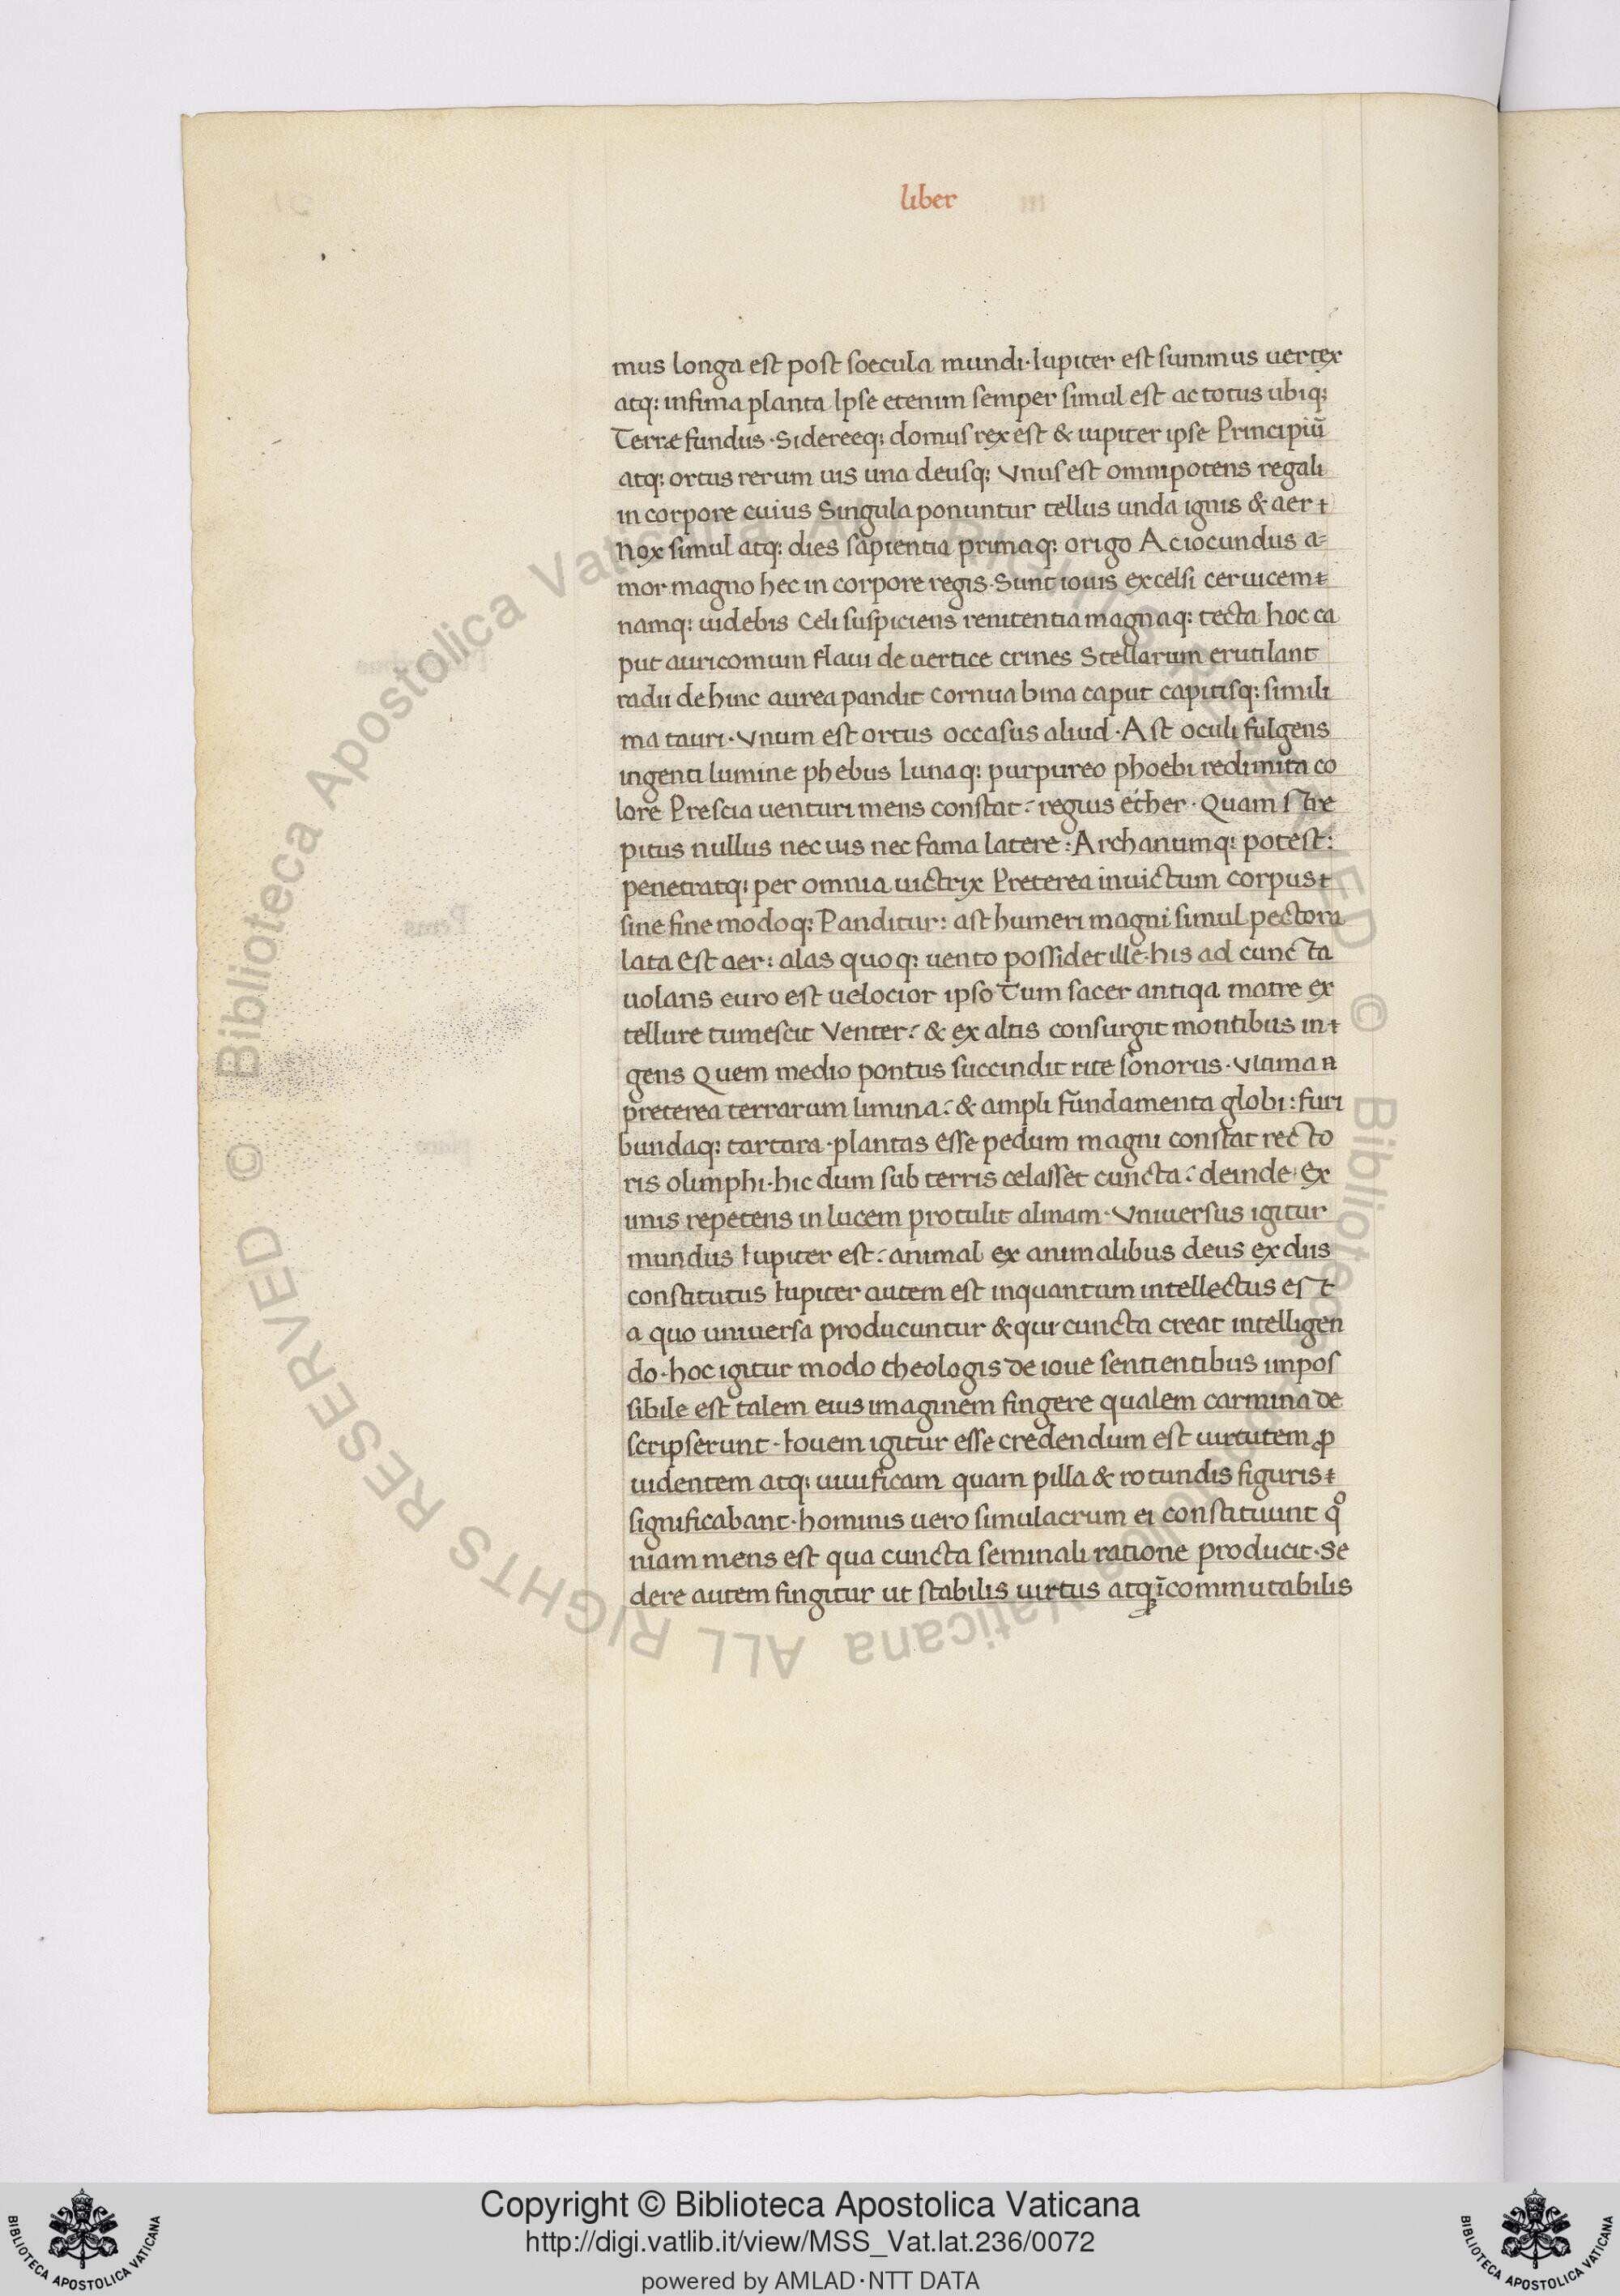 liber
mus longa est post soecula mundi· Iupiter est summus uertex
atq: infima planta Ipse etenim semper simul est ac totus ubiq;
Terræ fundus · Sidereeq; domus rex est & iupiter ipse Principiũ
atq: ortus rerum uis una deusq: Vnus est omnipotens regali
in corpore cuius Singula ponuntur tellus unda ignis & aer
Nox simul atq: dies sapientia primaq: origo Ac iocundus a-
mor magno hec in corpore regis· Sunt iouis excelsi ceruicem
namq: uidebis Celi suspiciens renitentia magnaq: tecta hoc ca
put auricomum flaui de uertice crines Stellarum erutilant
radii de hinc aurea pandit cornua bina caput capitisq: simili
ma tauri· Vnum est ortus occasus aliud· Ast oculi fulgens
ingenti lumine phebus lunaq: purpureo phoebi redimita co
lore Prescia uenturi mens constat: regius ether· Quam stre
pitus nullus nec uis nec fama latere: Archanumq: potest:
penetratq: per omnia uictrix Preterea inuictum corpus
sine fine modoq: Panditur: ast humeri magni simul pectora
lata Est aer: alas quoq: uento possidet ille· his ad cuncta
uolans euro est uelocior ipso Tum sacer antiqa matre ex
tellure tumescit Venter: & ex altis consurgit montibus in
gens Quem medio pontus succindit rite sonorus· Vltima
preterea terrarum limina: & ampli fundamenta globi: furi
bundaq: tartara· plantas esse pedum magni constat recto
ris olimphi· hic dum sub terris celasset cuncta: deinde: Ex
imis repetens in lucem protulit almam· Vniuersus igitur
mundus Iupiter est: animal ex animalibus deus ex diis
constitutus Iupiter autem est inquantum intellectus est
a quo uniuersa producuntur & qui cuncta creat intelligen
do· hoc igitur modo theologis de ioue sentientibus impos
sibile est talem eius imaginem fingere qualem carmina de
scripserunt· Iouem igitur esse credendum est uirtutem ꝓ
uidentem atq; uiuificam quam pilla & rotundis figuris
significabant· hominis uero simulacrum ei constituunt qº
niam mens est qua cuncta seminali ratione producit· Se
dere autem fingitur ut stabilis uirtus atq; ĩcommutabilis
Copyright © Biblioteca Apostolica Vaticana
http://digi.vatlib.it/view/MSS_Vat.lat.236/0072
powered by AMLAD·NTT DATA
BIBLIOTECA APOSTOLICA VATICANA
BIBLIOTECA APOSTOLICA VATICANA
© Biblioteca Apostolica Vaticana ALL RIGHTS RESERVED © Biblioteca Apostolica Vaticana ALL RIGHTS RESERVED